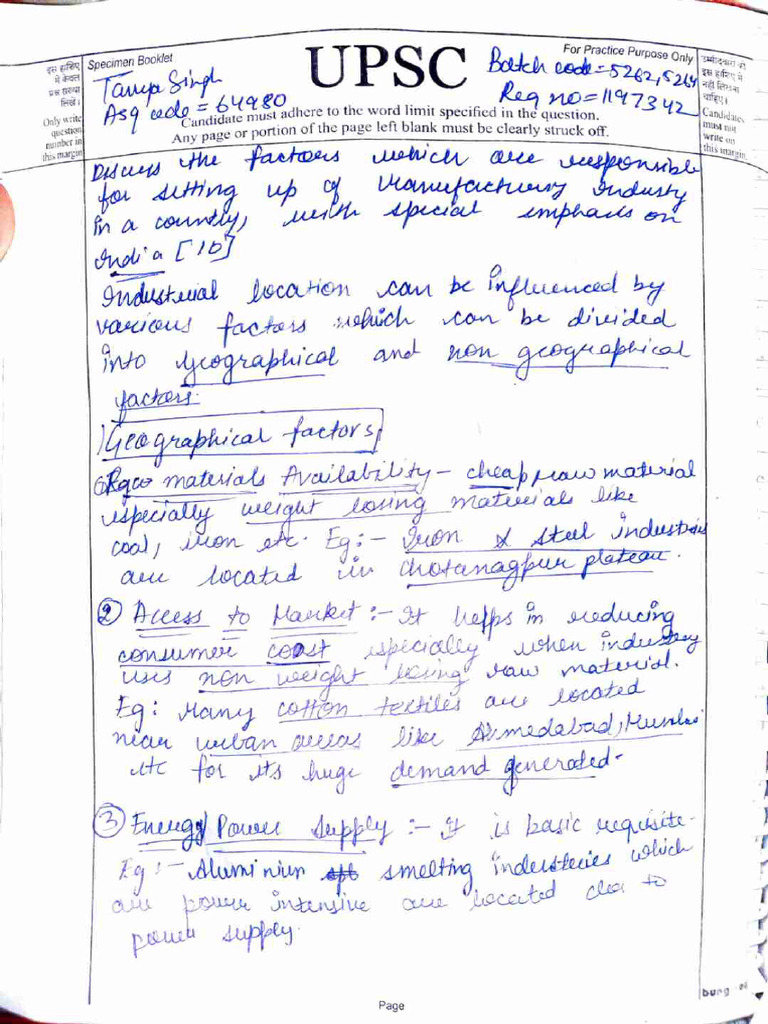 Specimen Booklet
UPSC
For Practice Purpose Only
इस हाशिए
में केवल
प्रश्न संख्या
लिखें।
Only write
question
number in
this margin
Tanya Singh
Asg code = 64980
Batch code = 5262, 5264
Reg no = 1197342
Candidate must adhere to the word limit specified in the question.
Any page or portion of the page left blank must be clearly struck off.
उम्मीदवारों को
इस हाशिए में
नहीं लिखना
चाहिए।
Candidates
must not
write on
this margin
Discuss the factors which are responsible
for setting up of Manufacturing Industy
in a country, with special emphasis on
India [10]
Industrial location can be influenced by
various factors which can be divided
into Geographical and non geographical
factors.
Geographical factors
① Raw materials Availability - cheap raw material
especially weight losing materials like
coal, iron etc. Eg:- Iron & Steel industries
are located in chotanagpur plateau.
② Access to Market :- It helps in reducing
consumer cost especially when industry
uses non weight losing raw material.
Eg: Many cotton textiles are located
near urban areas like Ahmedabad, Mumbai
etc for its huge demand generated.
③ Energy/Power Supply :- It is basic requisite.
Eg:- Aluminium smelting industeries which
are power intensive are located close to
power supply.
Page